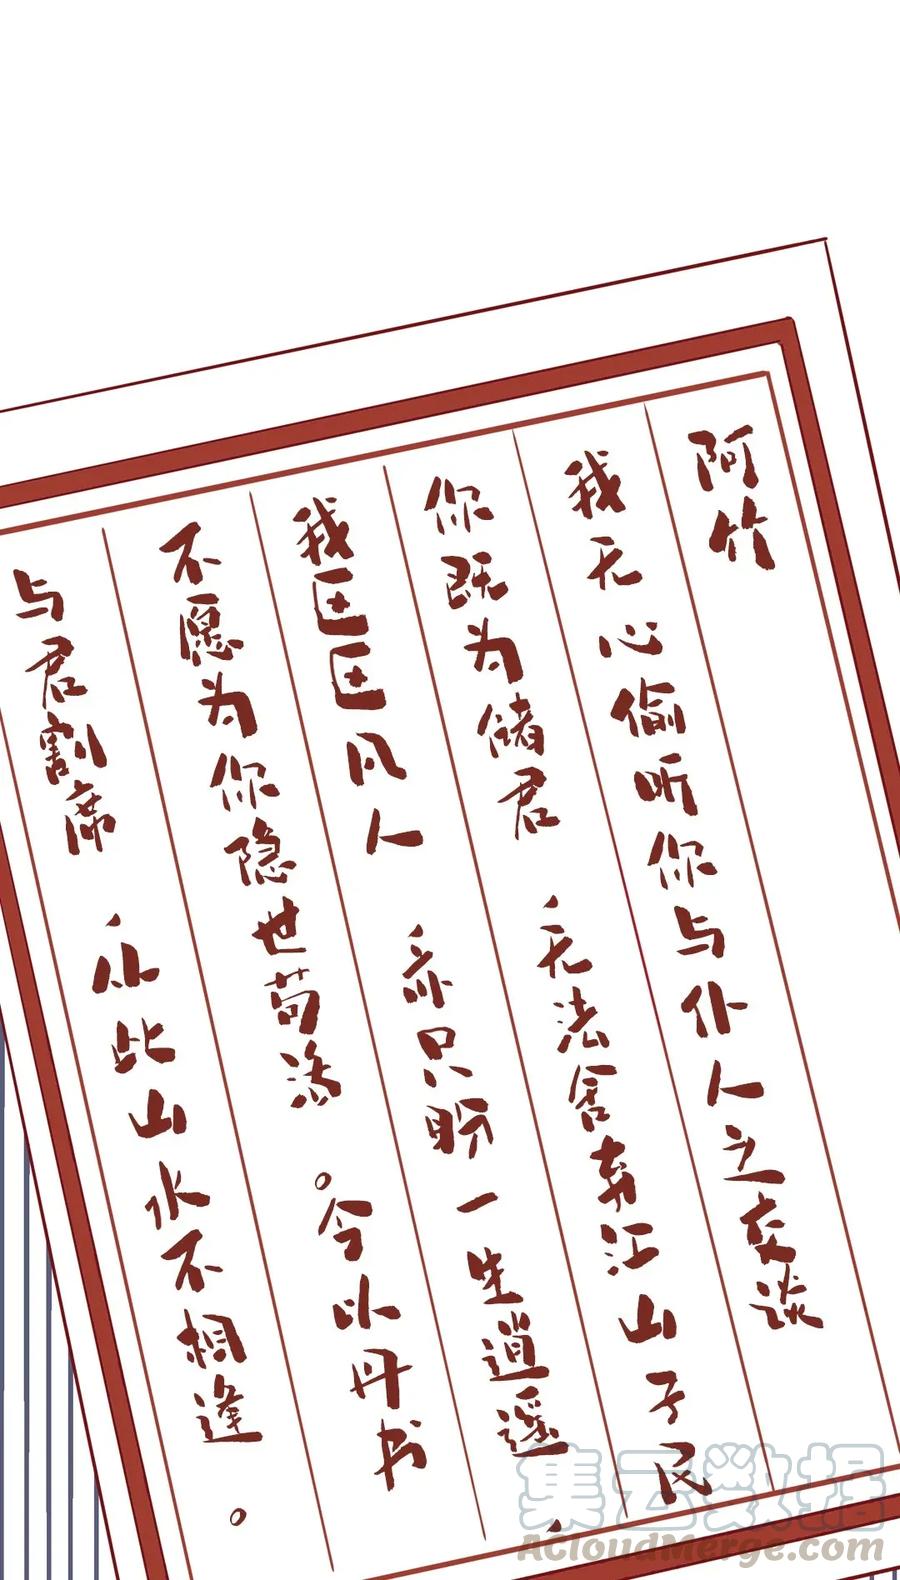 阿竹
我无心偷听你与仆人之交谈
你既为储君，无法舍弃江山子民
我区区凡人，亦只盼一生逍遥，
不愿为你隐世苟活。今以丹书
与君割席，从此山水不相逢。
集云数据
ACloudMerge.com